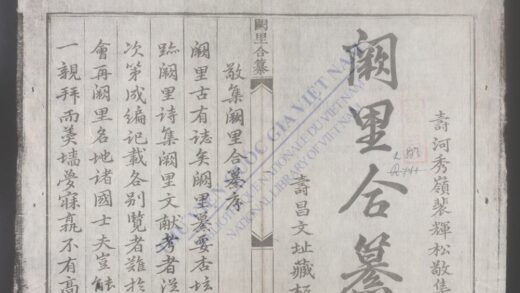 壽河秀嶺裴輝松敬集
闕里合纂
壽昌文址藏板
闕里合纂
敬集闕里合纂序
闕里古有誌矣闕里纂要杏坛
跡闕里詩集闕里文献考者
次第成編記載各别覽者難於
會再闕里名地諸國士夫豈能
一親拜而羹墻夢寐不有高
QUỐC GIA VIỆT NAM
NATIONALE DU VIETNAM
NATIONAL LIBRARY OF VIETNAM